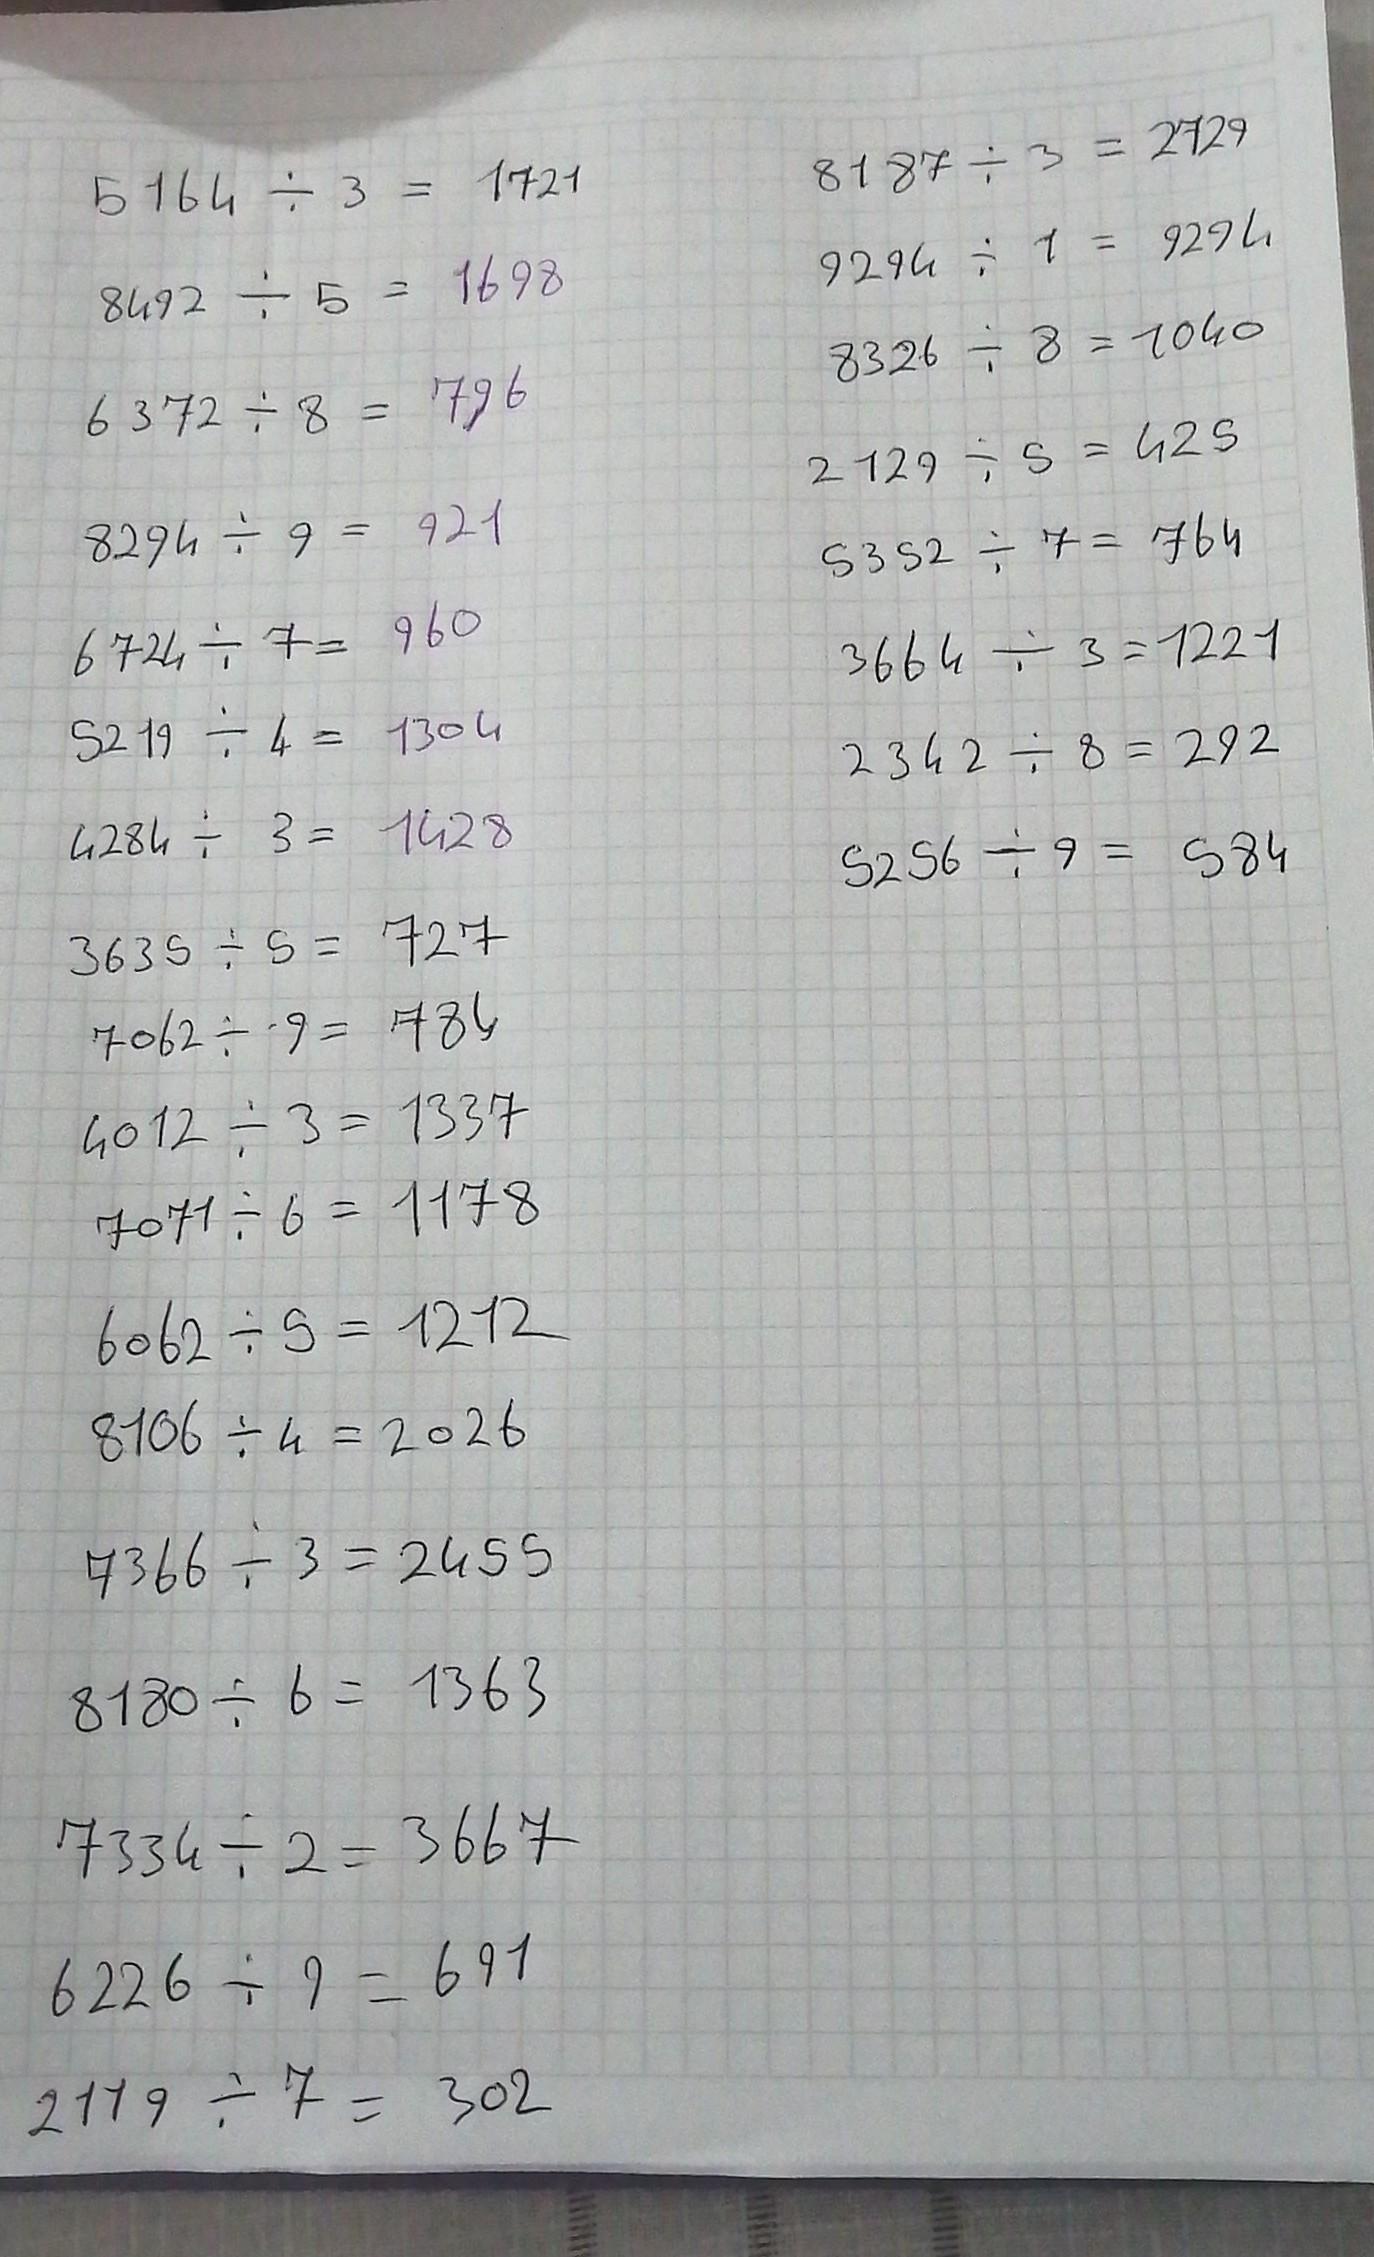 5164 ÷ 3 = 1721
8492 ÷ 5 = 1698
6372 ÷ 8 = 796
8294 ÷ 9 = 921
6724 ÷ 7 = 960
5219 ÷ 4 = 1304
4284 ÷ 3 = 1428
3635 ÷ 5 = 727
7062 ÷ 9 = 784
4012 ÷ 3 = 1337
7071 ÷ 6 = 1178
6062 ÷ 5 = 1212
8106 ÷ 4 = 2026
7366 ÷ 3 = 2455
8180 ÷ 6 = 1363
7334 ÷ 2 = 3667
6226 ÷ 9 = 691
2119 ÷ 7 = 302
8187 ÷ 3 = 2729
9294 ÷ 1 = 9294
8326 ÷ 8 = 1040
2129 ÷ 5 = 425
5352 ÷ 7 = 764
3664 ÷ 3 = 1221
2342 ÷ 8 = 292
5256 ÷ 9 = 584